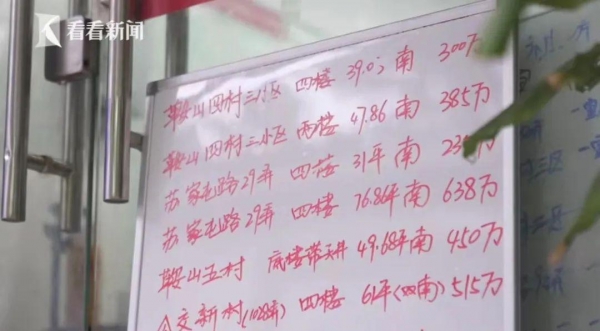 看看新闻
鞍山四村三小区 四楼 39.0 南 300万
鞍山四村三小区 两楼 47.86 南 385万
苏家屯路29弄 四楼 31平 南 23 万
苏家屯路29弄 四楼 76.86平 南 638万
鞍山五村 底楼带天井 49.68平南 450万
交新村(1028弄) 四楼 61平(四南) 515万